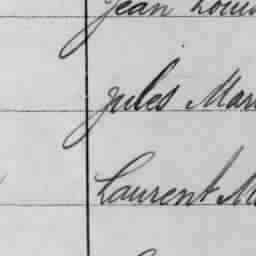 Jean Louis
Jules Mar
Laurent Ma